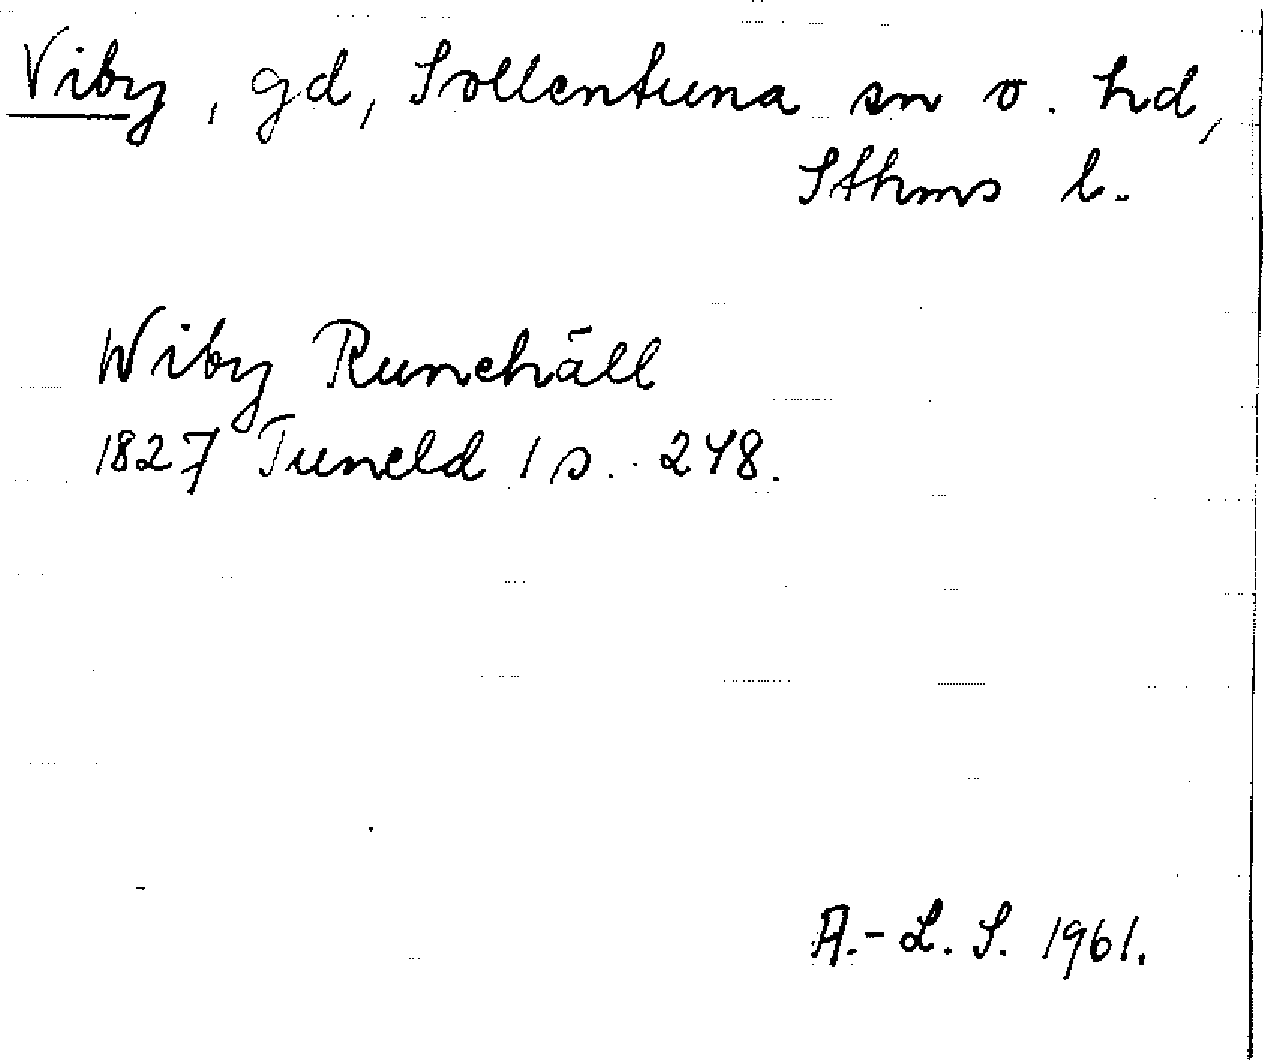 Viby, gd, Sollentuna sn o. hd,
Sthms l.
Wiby Runehäll
1827 Tuneld 1 s. 248.
A.-L. S. 1961.